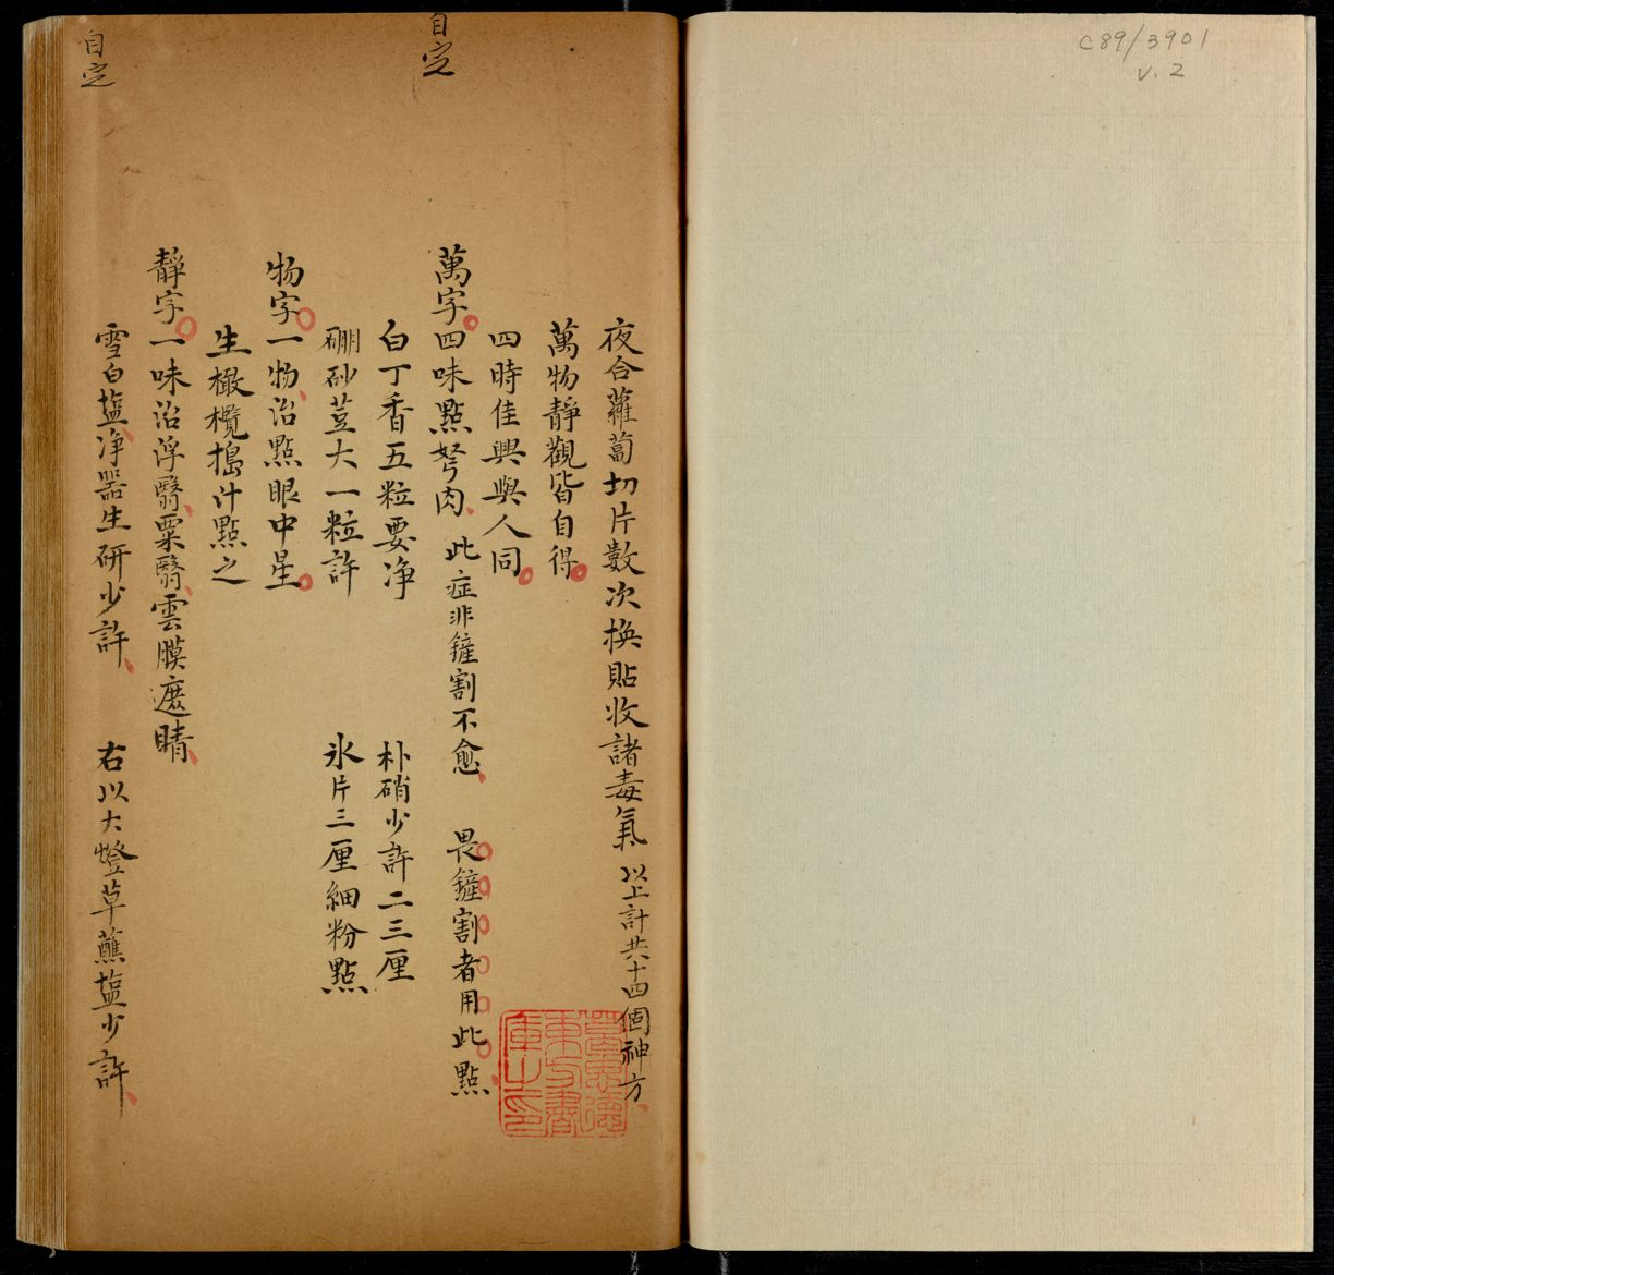 C89/3901
V.2
夜合蘿蔔切片數次換貼收諸毒氣 以上計共十四個神方
萬物靜觀皆自得
四時佳興與人同
自定
萬字四味點弩肉 此症非鏟割不愈 畏鏟割者用此點
白丁香五粒要净 朴硝少許二三厘
硼砂荳大一粒許 氷片三厘細粉點
物字一物治點眼中星
生橄欖搗汁點之
靜字一味治浮翳粟翳雲膜遮睛
自定
雪白塩净器生研少許 右以大燈草蘸塩少許
葛思德東方書庫之印